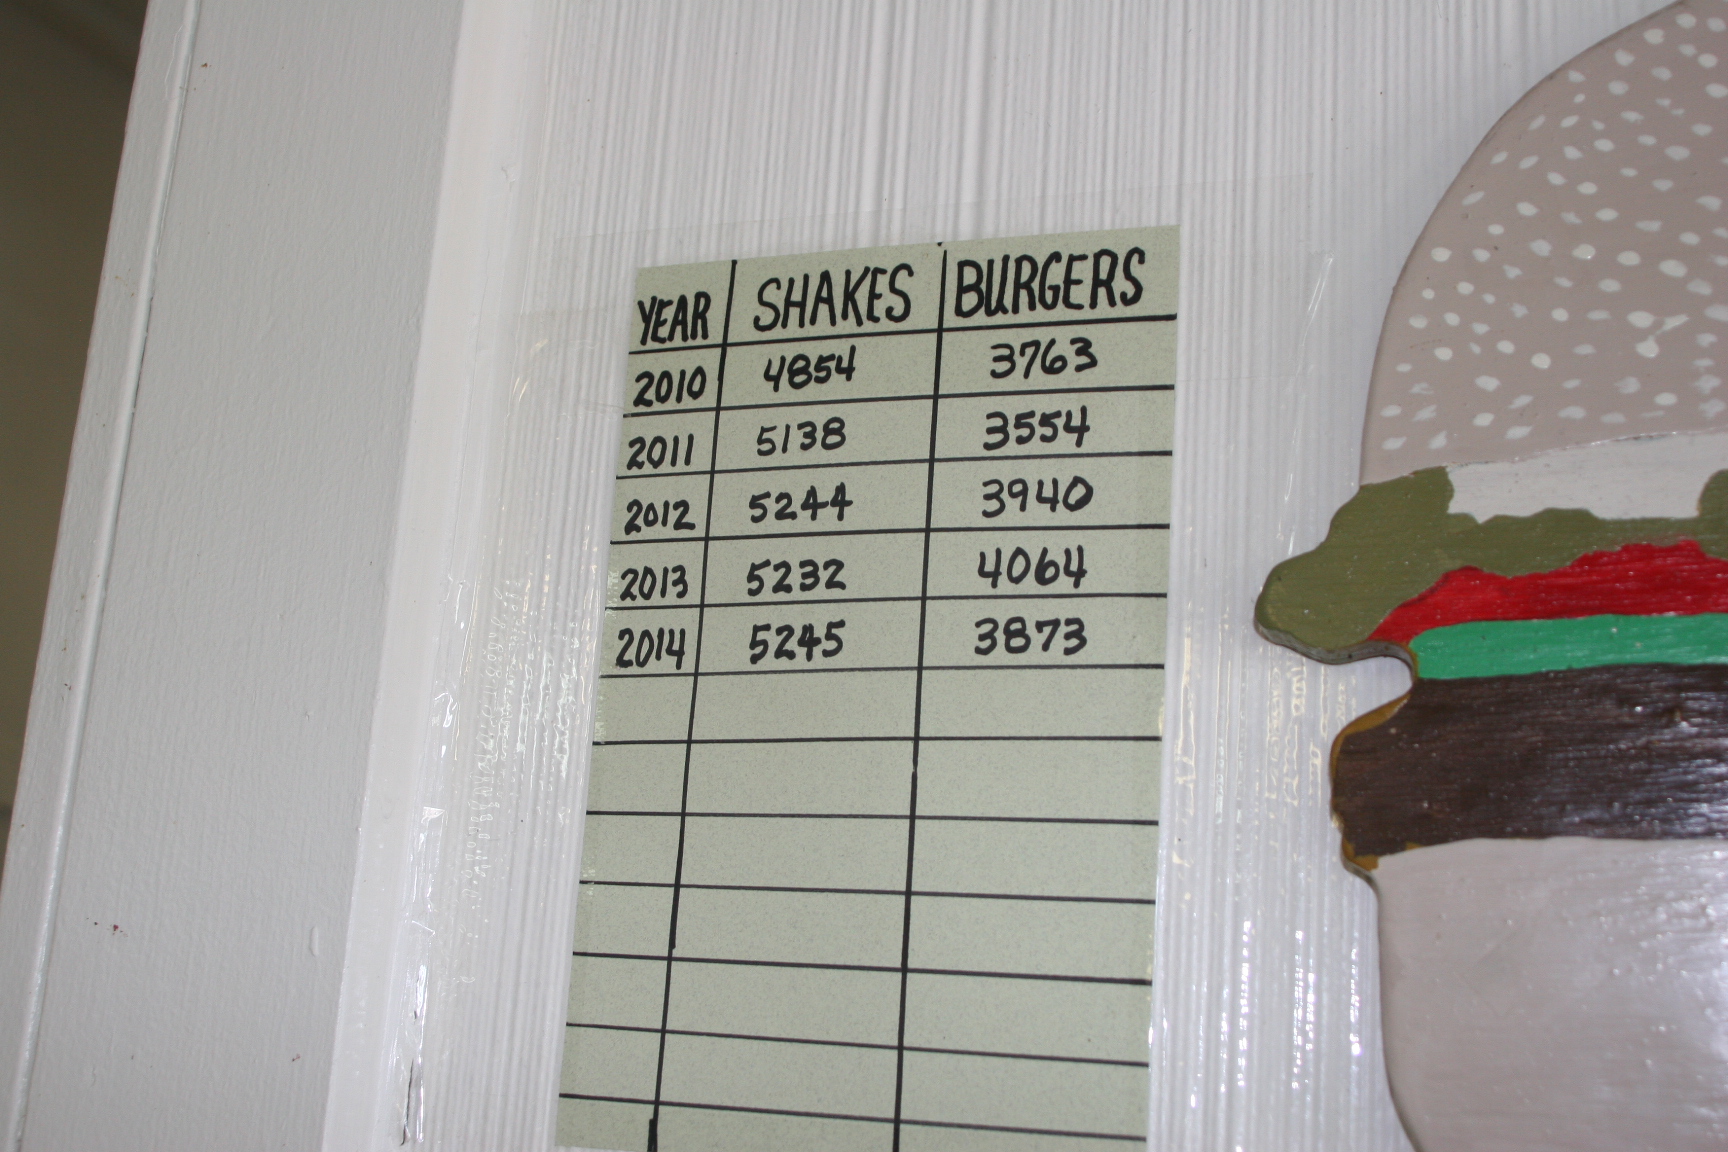 YEAR SHAKES BURGERS
2010 4854 3763
2011 5138 3554
2012 5244 3940
2013 5232 4064
2014 5245 3873